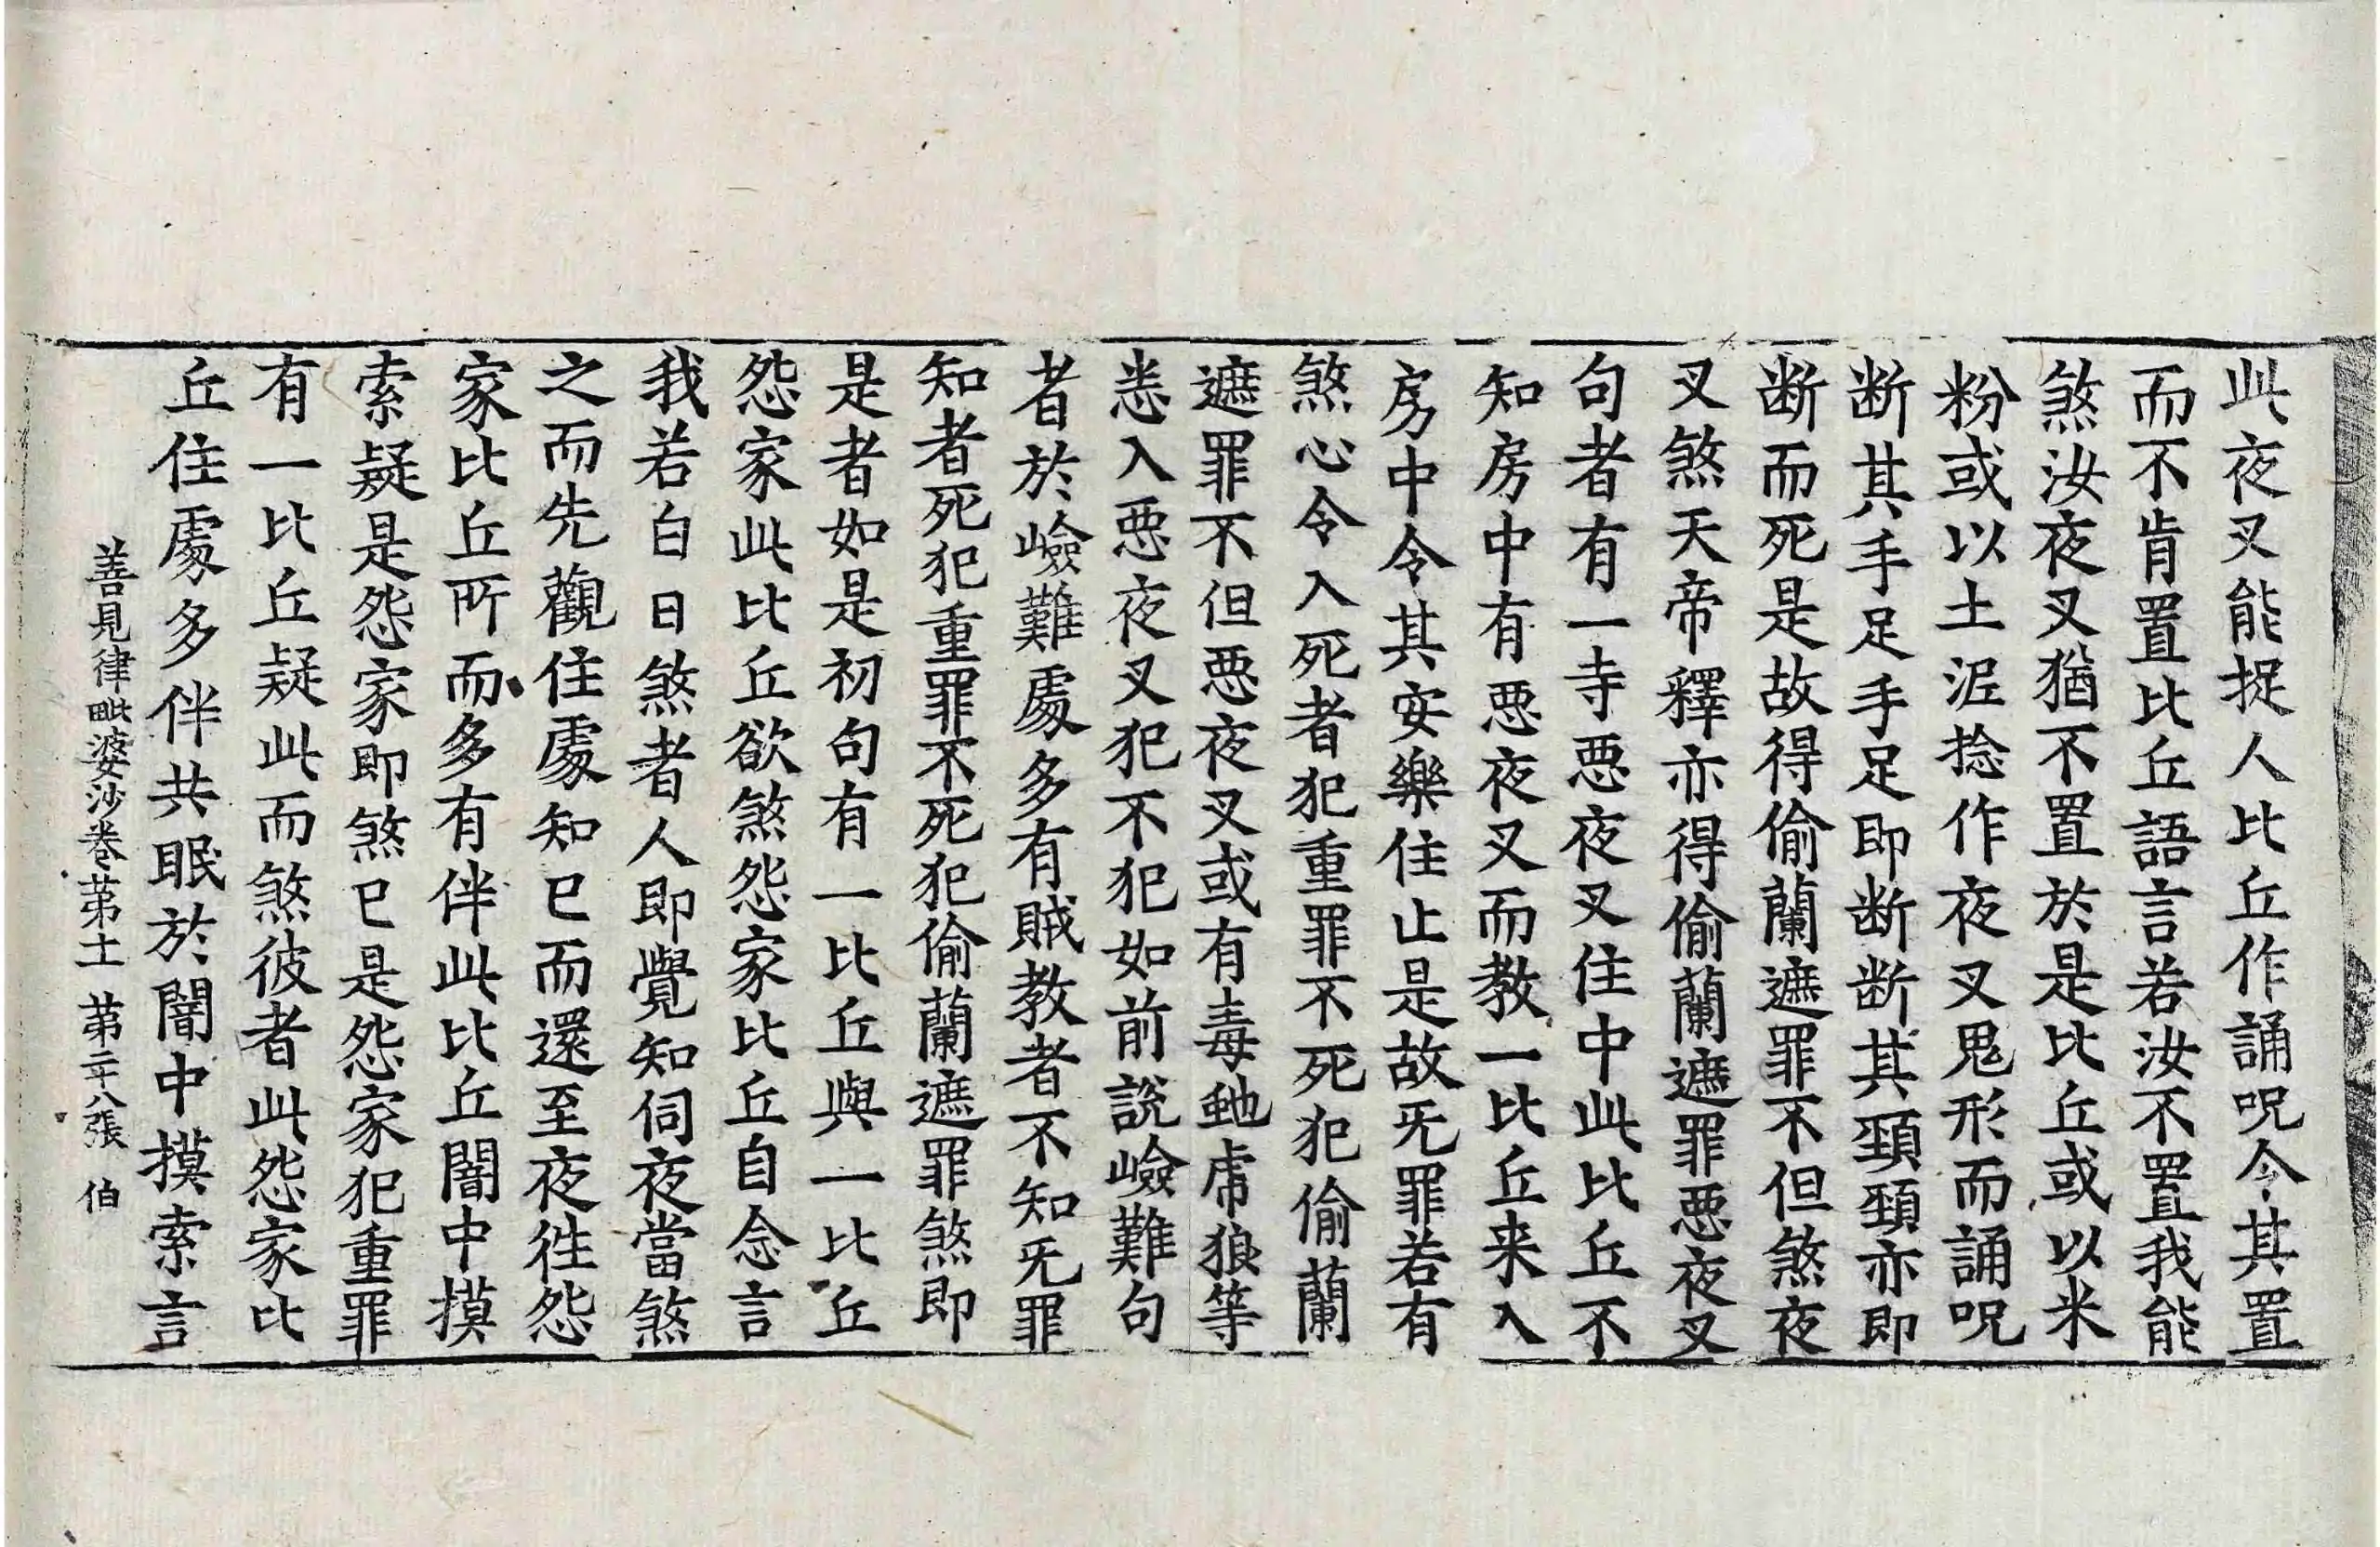 此夜叉能捉人比丘作誦呪令其置
而不肯置比丘語言若汝不置我能
煞汝夜叉猶不置於是比丘或以米
粉或以土泥捻作夜叉鬼形而誦呪
断其手足手足即断断其頚頚亦即
断而死是故得偷蘭遮罪不但煞夜
叉煞天帝釋亦得偷蘭遮罪悪夜叉
句者有一寺悪夜叉住中此比丘不
知房中有悪夜叉而教一比丘来入
房中令其安樂住止是故无罪若有
煞心令入死者犯重罪不死犯偷蘭
遮罪不但悪夜叉或有毒虵虎狼等
恙入悪夜叉犯不犯如前説嶮難句
者於嶮難處多有賊教者不知无罪
知者死犯重罪不死犯偷蘭遮罪煞即
是者如是初句有一比丘與一比丘
怨家此比丘欲煞怨家比丘自念言
我若白日煞者人即覺知伺夜當煞
之而先觀住處知已而還至夜徃怨
家比丘所而多有伴此比丘闇中摸
索疑是怨家即煞已是怨家犯重罪
有一比丘疑此而煞彼者此怨家比
丘住處多伴共眠於闇中摸索言
善見律毗婆沙卷苐十一 苐二十八張 伯